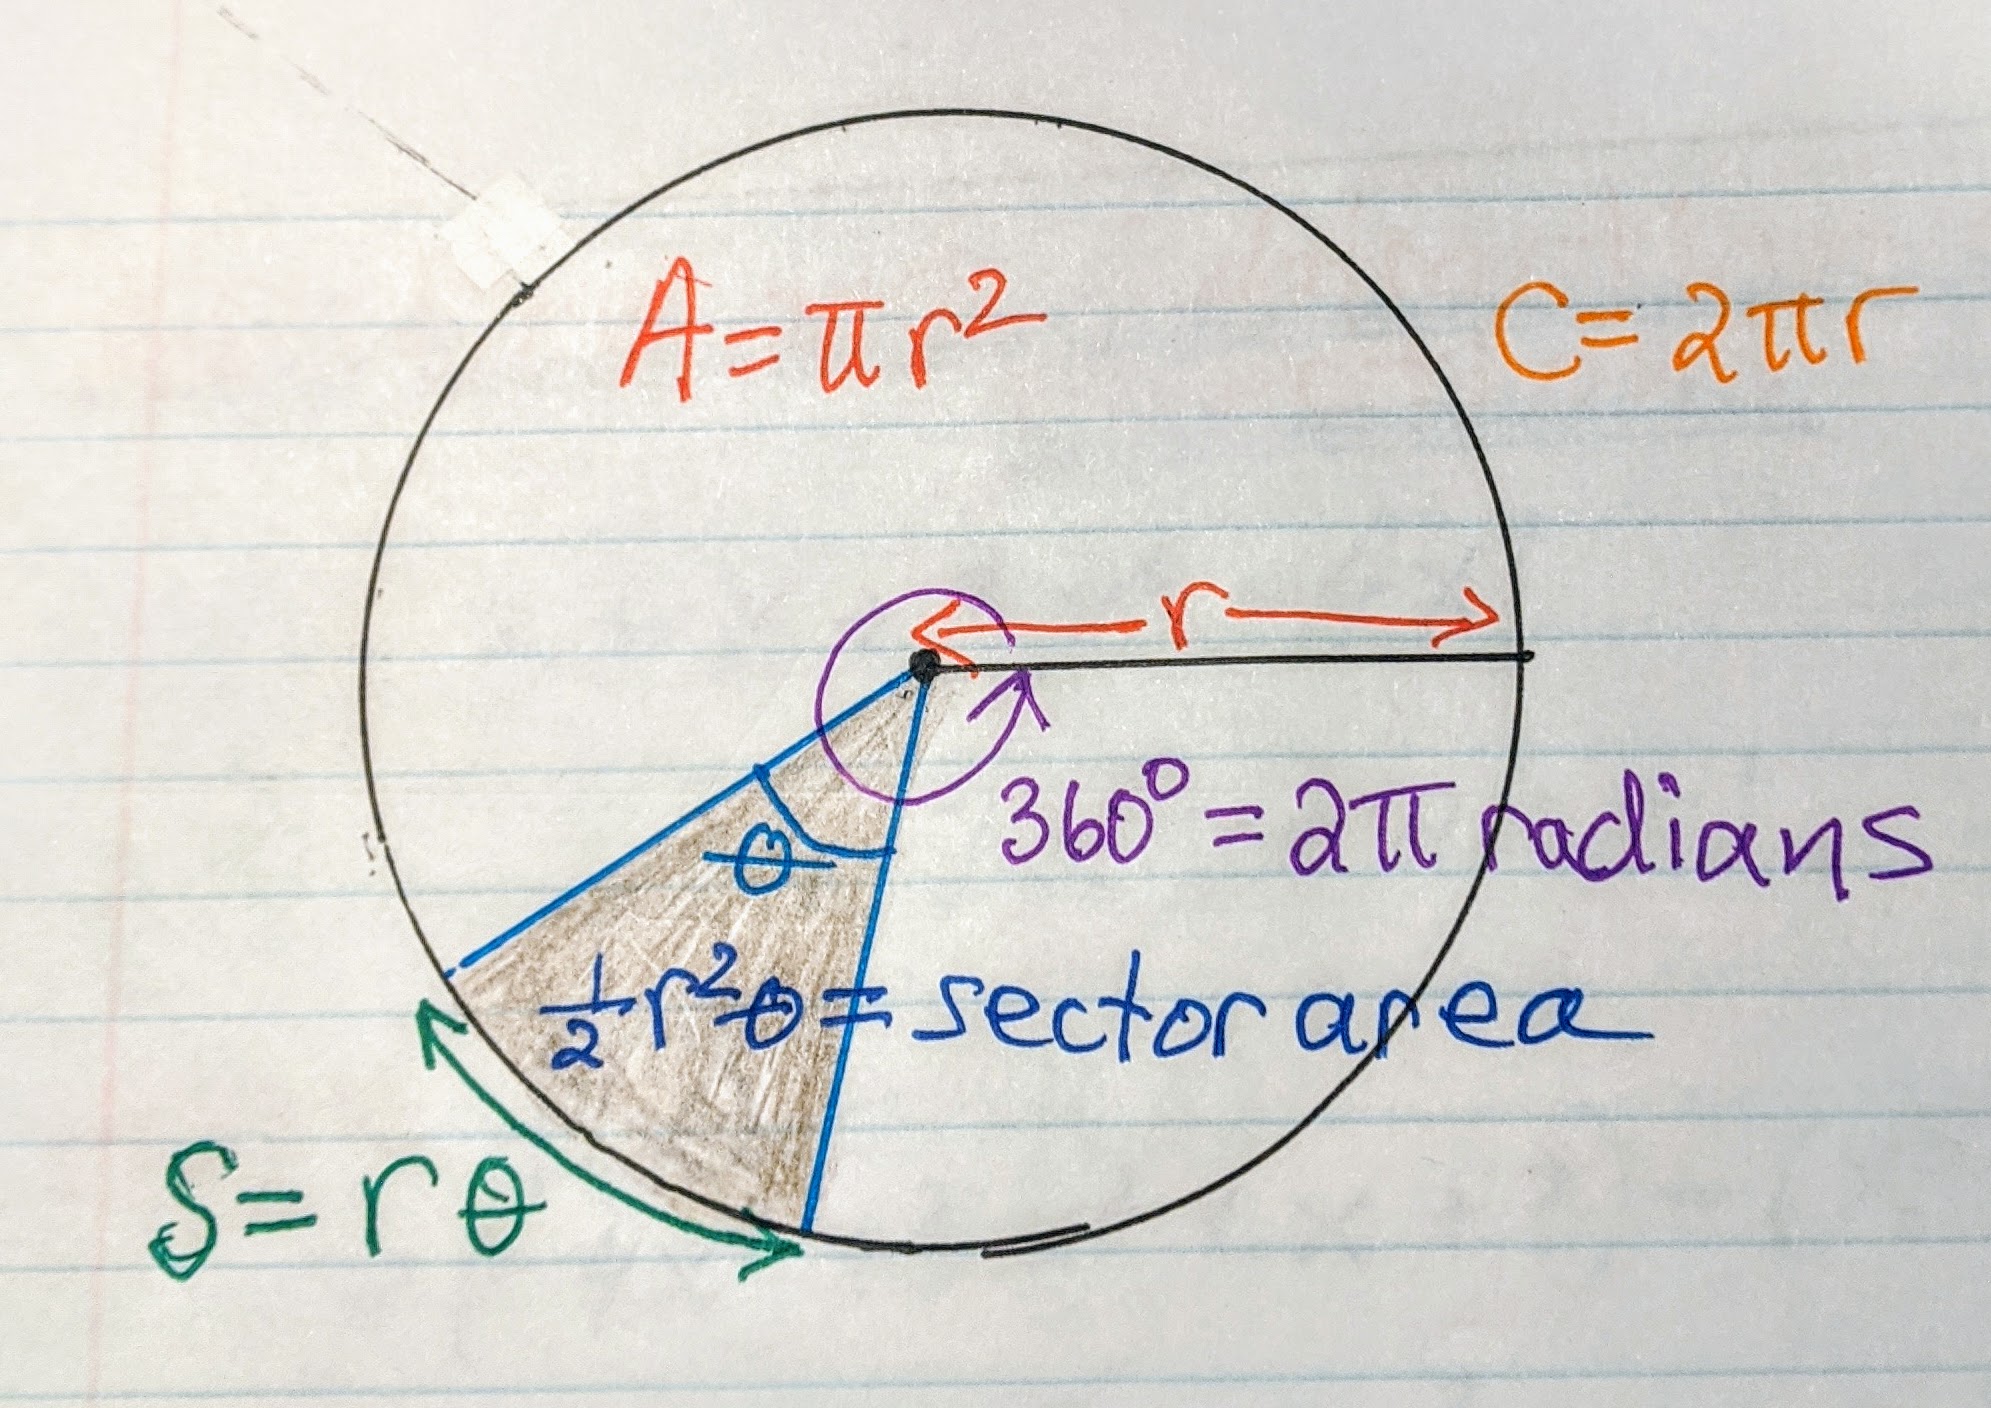 A = πr²
C = 2πr
r
360° = 2π radians
θ
½r²θ = sector area
S = rθ